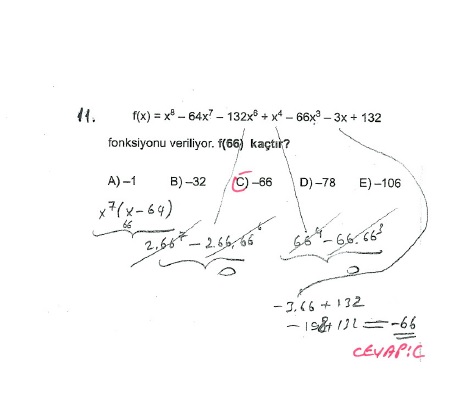 11. f(x) = x⁸ – 64x⁷ – 132x⁶ + x⁴ – 66x³ – 3x + 132
fonksiyonu veriliyor. f(66) kaçtır?
A) –1 B) –32 C) –66 D) –78 E) –106
x⁷(x–64)
66
2.66⁷ – 2.66.66⁶ 66⁴ – 66.66³
0 0
–3.66 + 132
–198 + 132 = –66
CEVAP: C